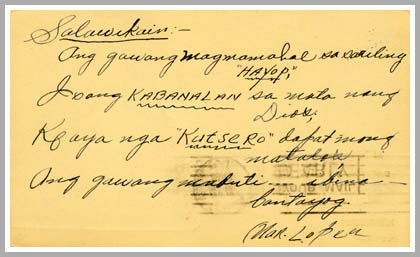 Salawikain:-
Ang gawang magmamahal sa sariling
"HAYOP,"
Isang KABANALAN sa mata nang
Dios;
Kaya nga "KUTSERO" dapat mong
matalos
Ang gawang mabuti ibiva
bantayog.
Mar. Lopez